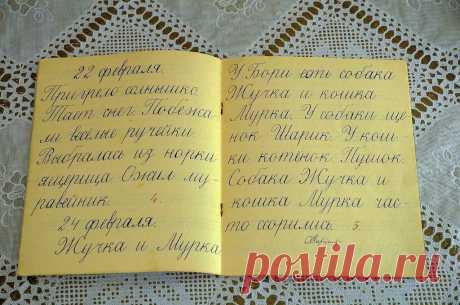 22 февраля.
Пригрело солнышко
Тает снег. Побежа
ли весёлые ручейки
Выбралась из норки
ящерица Ожил му-
равейник. 4.
24 февраля.
Жучка и Мурка
У Бори есть собака
Жучка и кошка
Мурка. У собаки ще-
нок Шарик. У кош-
ки котёнок Пушок.
Собака Жучка и
кошка Мурка час-
то ссорились. 5.
postila.ru